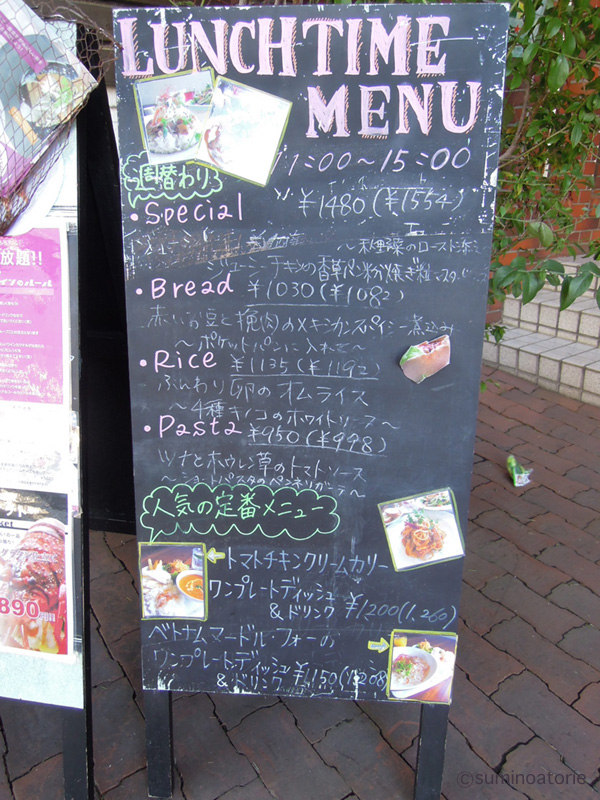 LUNCHTIME
MENU
11:00～15:00
週替わり
・Special ¥1480(¥1554)
ジューシーチキンの香草パン粉焼き粒マスタード
・Bread ¥1030(¥1082)
赤いお豆と挽肉のメキシカンスパイシー煮込み
～ポケットパンに入れて～
・Rice ¥1135(¥1192)
ふんわり卵のオムライス
～4種キノコのホワイトソース～
・Pasta ¥950(¥998)
ツナとホウレン草のトマトソース
人気の定番メニュー
トマトチキンクリームカリー
ワンプレートディッシュ
&ドリンク ¥1200(1,260)
ベトナムヌードルフォーの
ワンプレートディッシュ
&ドリンク ¥1,150(1,208)
放題!!
890
©suminoatorie